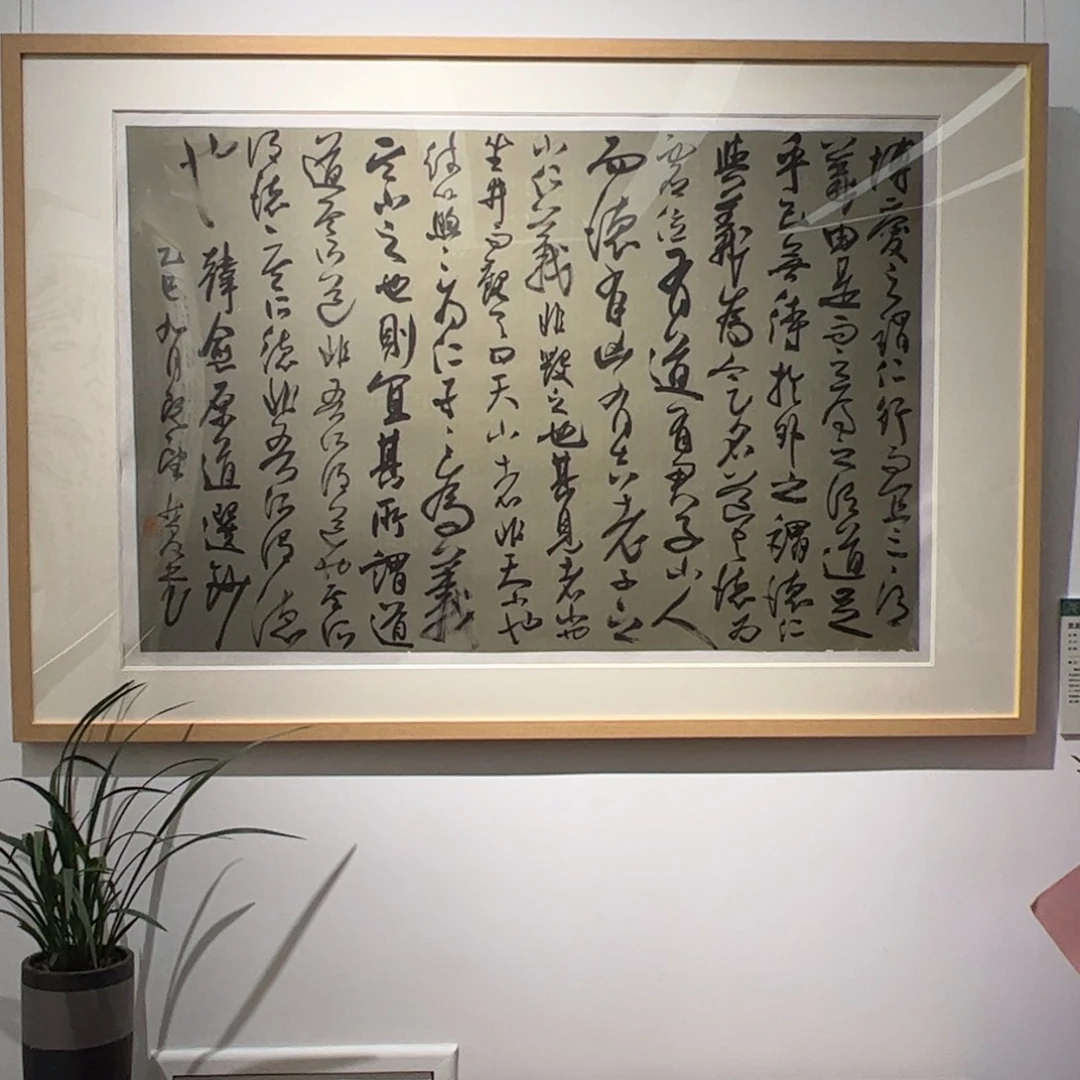 博愛之謂仁行而宜之之謂
義由是而之焉之謂道足
乎己無待於外之謂德仁
與義為定名道與德為
虛位故道有君子小人
而德有凶有吉老子之
小仁義非毀之也其見者小也
坐井而觀天曰天小者非天小也
彼以煦煦為仁孑孑為義
其小之也則宜其所謂道
道其所道非吾所謂道也其所
謂德德其所德非吾所謂德
也 韓愈原道選鈔
乙巳九月既望